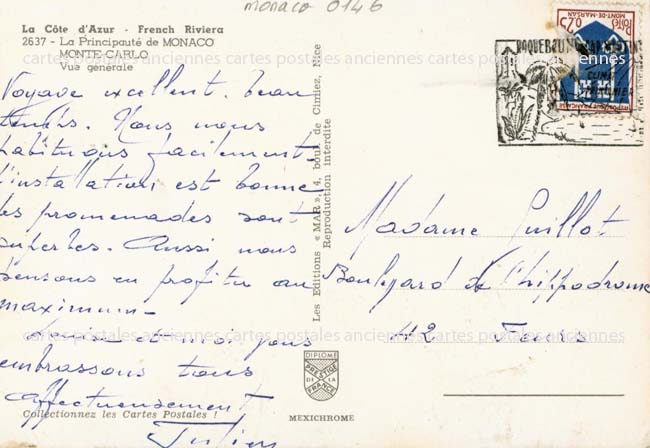 monaco 0146
La Côte d'Azur - French Riviera
2637 - La Principauté de MONACO
MONTE-CARLO
Vue générale
Voyage excellent. beau
temps. Nous nous
habituons facilement,
l'installation est bonne
les promenades sont
superbes. Aussi nous
pensons en profiter au
maximum-
et moi vous
embrassons tous
affectueusement
Collectionnez les Cartes Postales !
Les Editions « MAR », 4, boul. de Cimiez, Nice
Reproduction interdite
DIPLOME
PRESTIGE
DE LA
FRANCE
MEXICHROME
ROQUEBRUNE CAP MARTIN
CLIMAT
0,25
Postes
MONT-DE-MARSAN
REPUBLIQUE FRANÇAISE
Madame Guillot
Boulevard de l'hippodrome
112
cartes postales anciennes cartes postales anciennes cartes postales anciennes
cartes postales anciennes cartes postales anciennes cartes postales anciennes